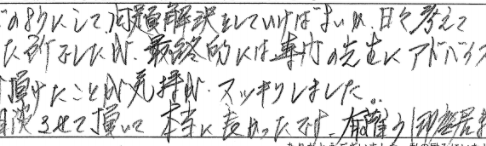 どのようにして問題解決をしていけばよいか、日々考えて
た所でしたが、最終的には専門の先生にアドバイス
頂けたことが気持が、スッキリしました。
相談させて頂いて本当に良かったです。有難う